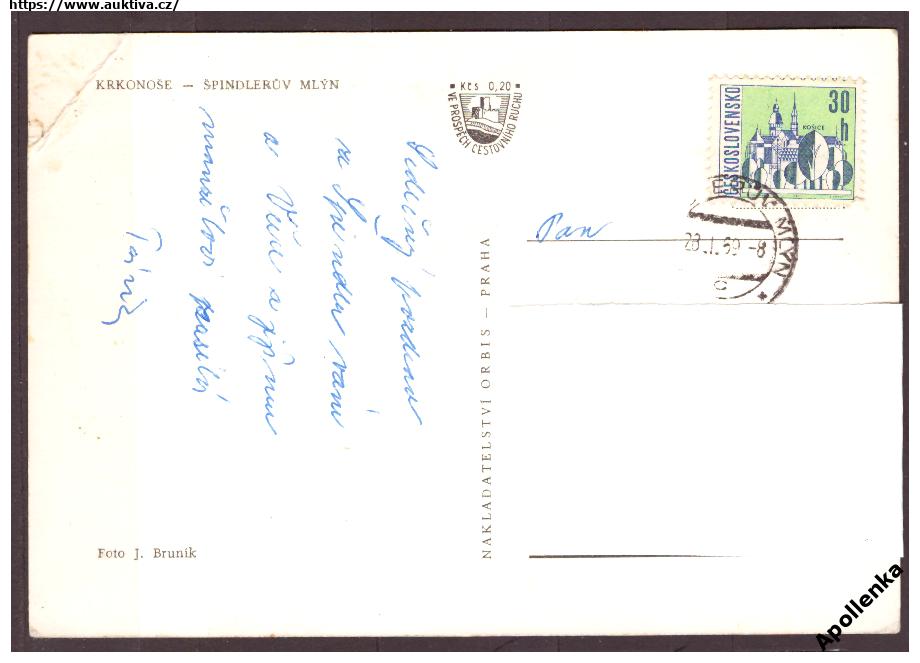 https://www.auktiva.cz/
KRKONOŠE — ŠPINDLERŮV MLÝN
Kčs 0,20
VE PROSPĚCH CESTOVNÍHO RUCHU
ČESKOSLOVENSKO
30 h
KOŠICE
MLÝN
28.1.69-8
Pan
Srdečný pozdrav
ze Špindlu vám
a Věře
NAKLADATELSTVÍ ORBIS - PRAHA
Foto J. Bruník
Apollenka